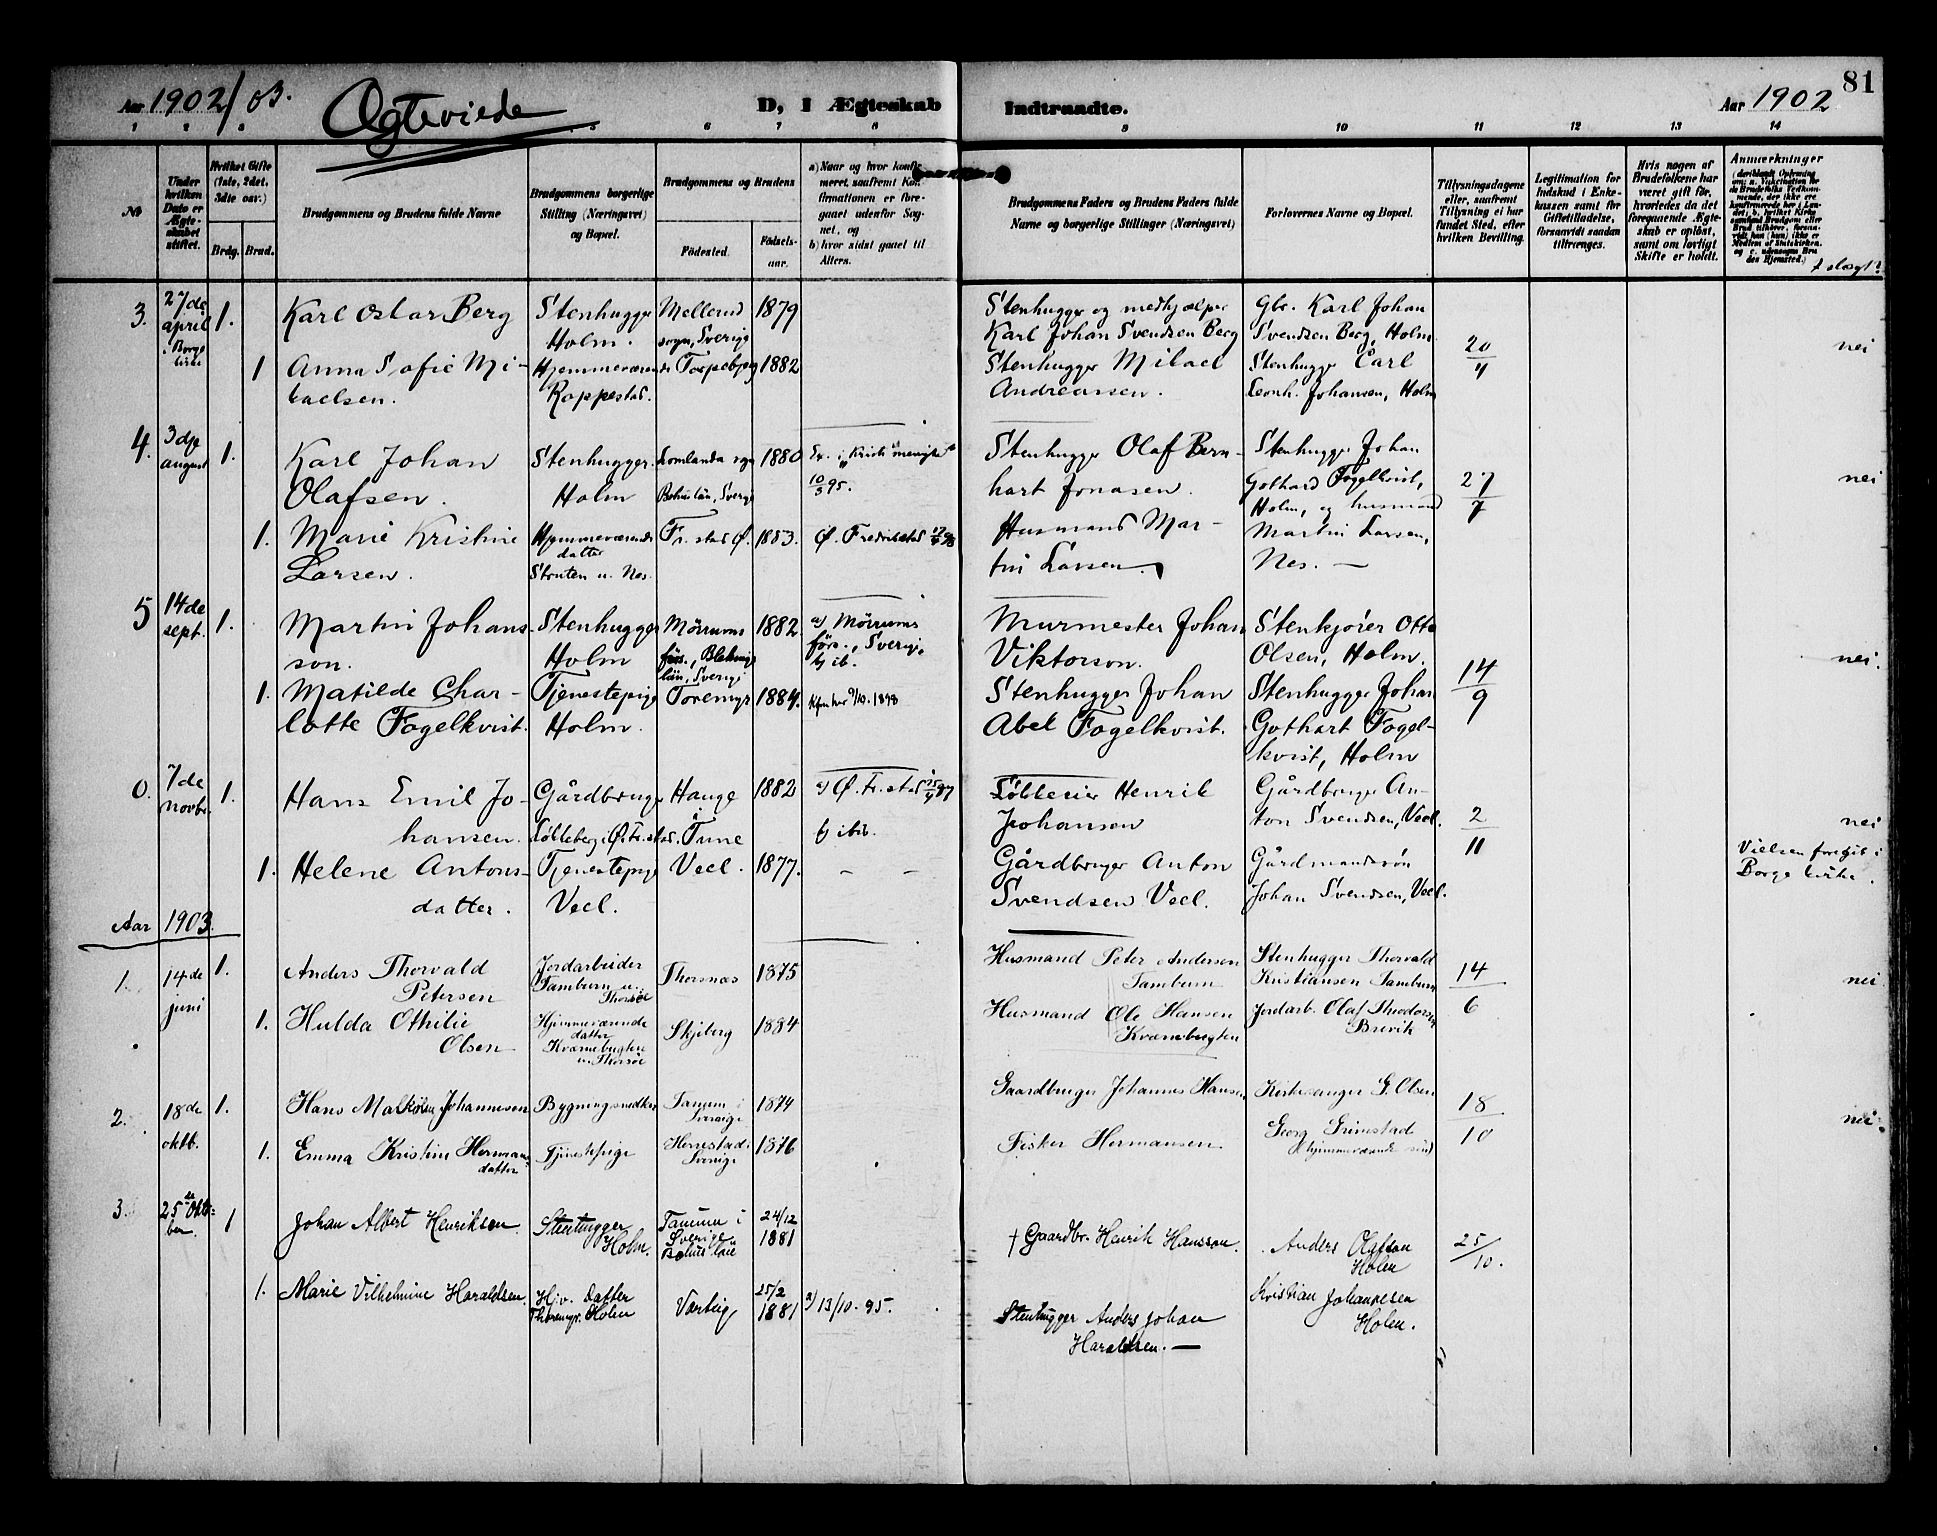 81
Aar 1902/03. Ægteviede D, I Ægteskab Indtraadte. Aar 1902
1 2 3 5 6 7 8 9 10 11 12 13 14
No
Under hvilken Dato er Ægteskabet stiftet.
Hvilket Gifte (1ste, 2det, 3die osv.)
Brdg. Brud.
Brudgommens og Brudens fulde Navne
Brudgommens borgerlige Stilling (Næringsvei) og Bopæl.
Brudgommens og Brudens
Fødested. Fødsels-aar.
a) Naar og hvor konfirmeret, saafremt Konfirmationen er foregaaet udenfor Sognet, og
b) hvor sidst gaaet til Alters.
Brudgommens Faders og Brudens Faders fulde Navne og borgerlige Stillinger (Næringsvei)
Forlovernes Navne og Bopæl.
Tillysningsdagene eller, saafremt Tillysning ei har fundet Sted, efter hvilken Bevilling.
Legitimation for Indskud i Enkekassen samt for Giftetilladelse, forsaavidt saadan tiltrænges.
Hvis nogen af Brudefolkene har været gift før, hvorledes da det foregaaende Ægteskab er opløst, samt om lovligt Skifte er holdt.
Anmærkninger
3. 27de april Borge 1.
Karl Oskar Berg
Stenhugger Holm.
Mellerud sogn, Sverige
1879
Stenhugger og medhjælper
Karl Johan Svendsen Berg
Gbr. Karl Johan
Svendsen Berg, Holm.
20/4
nei
1 Anna Sofie Mi-
kaelsen.
Hjemmeværende
Roppestad.
Torpebjerg
1882
Stenhugger Mikael
Andreassen.
Stenhugger Carl
Leonh. Johansen, Holm
4. 3dje august 1.
Karl Johan
Olafsen.
Stenhugger.
Holm
Lomlanda sogn
Bohuslän, Sverige
1880
10/3 95.
Stenhugger Olaf Bern-
hart Jonasen.
Stenhugger Johan
Gothard Fogelkvist,
Holm, og husmand
27/7
nei
1. Marie Kristine
Larsen.
Hjemmeværende
datter
Struten u. Nes.
Fr. stad Ø.
1883.
Ø. Fredrikstad
Husmand Mar-
tin Larsen.
Martin Larsen,
Nes.
5 14de sept. 1.
Martin Johans-
son.
Stenhugger
Holm
Mörrums
förs., Blekinge
län, Sverige
1882.
a) Mörrums
förs., Sverige
b) ib.
Murmester Johan
Viktorson.
Stenkjører Otto
Olsen, Holm.
14/9
nei.
1. Matilde Char-
lotte Fogelkvist.
Tjenestepige
Holm.
Toremyr
1884.
9/10. 1898
Stenhugger Johan
Abel Fogelkvist.
Stenhugger Johan
Gothart Fogel-
kvist, Holm
0. 7de novbr. 1.
Hans Emil Jo-
hansen.
Gårdbruger
Løkkeberg, Ø. Fr. stad.
Hauge
i Tune
1882
a) Ø. Fr. stad
b) ibid.
Løkkeeier Henrik
Johansen
Gårdbruger An-
ton Svendsen, Veel.
2/11
nei
Vielsen foregik i
Borge kirke.
1. Helene Antons-
datter.
Tjenestepige
Veel.
Veel.
1877.
– –
Gårdbruger Anton
Svendsen Veel.
Gårdmandssøn
Johan Svendsen, Veel.
Aar 1903.
1. 14de juni 1.
Anders Thorvald
Petersen
Jordarbeider
Tamburn u.
Thorsøe
Thorsnæs
1875
Husmand Peter Andersen
Tamburn
Stenhugger Thorvald
Kristiansen Tamburn
14/6
nei
1. Hulda Othilie
Olsen
Hjemmeværende
datter
Kværnebugten
u. Thorsøe
Skjeberg
1884
Husmand Ole Hansen
Kværnebugten
Jordarb. Olaf Theodorsen
Brevik
2. 18de oktb. 1.
Hans Malkolm Johannesen
Bygningssnedker
Tanum i
Sverige
1874
Gaardbruger Johannes Hansen
Kirkesanger G. Olsen
18/10
nei.
1. Emma Kristine Hermans-
datter
Tjenestepige
Herrestad i
Sverige
1876
Fisker Hermansen
Georg Grimstad
3. 25de Oktober 1
Johan Albert Henriksen.
Stenhugger
Holm.
Tanum i
Sverige
Bohus län
24/12
1881
† Gaardbr. Henrik Hansson.
Anders Olafson
Holm
25/10.
1. Marie Vilhelmine Haraldsen.
Hjv. datter
Thoremyr. Holm
Varteig
25/2
1881
a) 13/10. 95.
Stenhugger Anders Johan
Haraldsen. –
Kristian Johannesen
Holm.